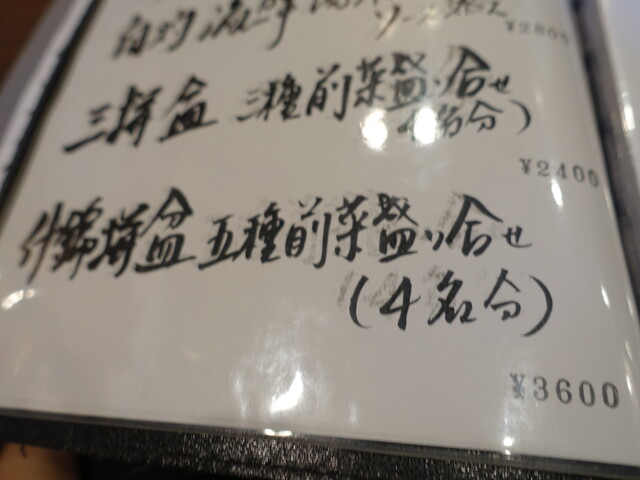 ¥2800
三拼盆 三種前菜盛り合せ
名分)
¥2400
什錦拼盆 五種前菜盛り合せ
(4名分)
¥3600